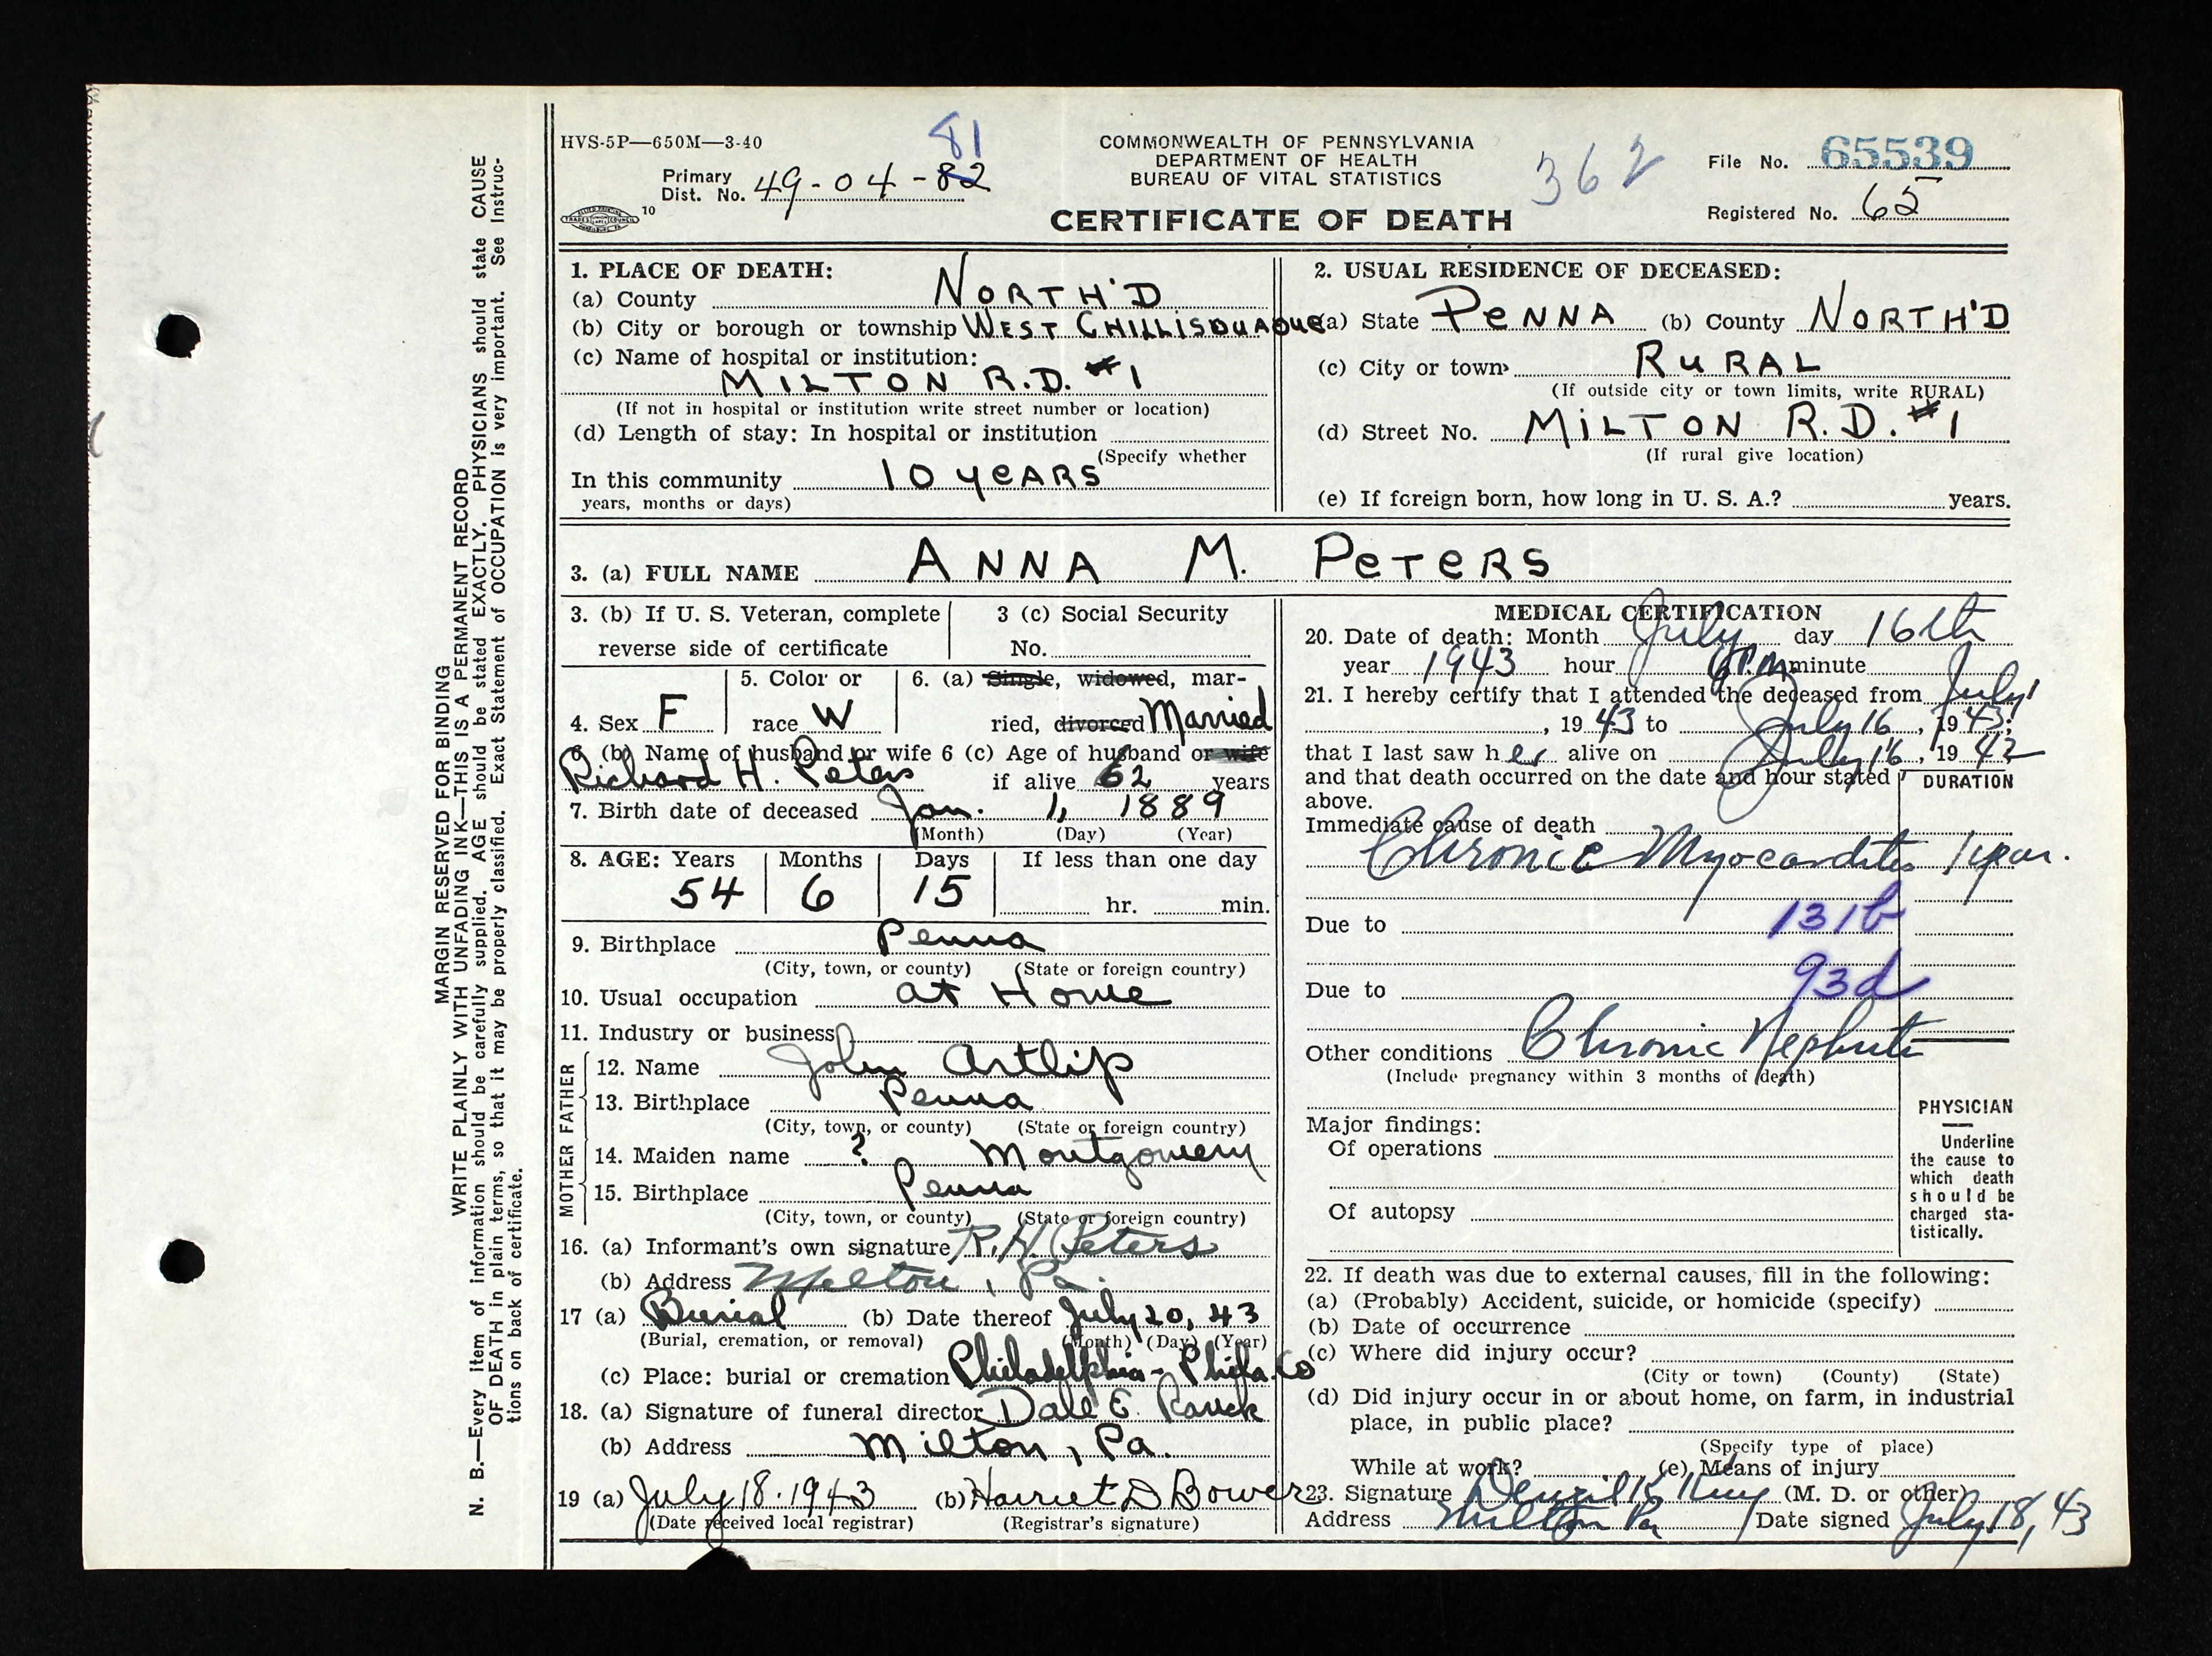 HVS-5P—650M—3-40
81
Primary
Dist. No. 49-04-82
10
COMMONWEALTH OF PENNSYLVANIA
DEPARTMENT OF HEALTH
BUREAU OF VITAL STATISTICS
CERTIFICATE OF DEATH
362
File No. 65539
Registered No. 65
MARGIN RESERVED FOR BINDING
WRITE PLAINLY WITH UNFADING INK—THIS IS A PERMANENT RECORD
N. B.—Every item of information should be carefully supplied. AGE should be stated EXACTLY. PHYSICIANS should state CAUSE
OF DEATH in plain terms, so that it may be properly classified. Exact Statement of OCCUPATION is very important. See Instruc-
tions on back of certificate.
1. PLACE OF DEATH:
(a) County NORTH'D
(b) City or borough or township WEST CHILLISQUAQUE
(c) Name of hospital or institution:
MILTON R.D. #1
(If not in hospital or institution write street number or location)
(d) Length of stay: In hospital or institution
(Specify whether
In this community 10 YEARS
years, months or days)
2. USUAL RESIDENCE OF DECEASED:
(a) State PENNA (b) County NORTH'D
(c) City or town RURAL
(If outside city or town limits, write RURAL)
(d) Street No. MILTON R.D. #1
(If rural give location)
(e) If foreign born, how long in U. S. A.? years.
3. (a) FULL NAME ANNA M. PETERS
3. (b) If U. S. Veteran, complete
reverse side of certificate
3 (c) Social Security
No.
4. Sex F
5. Color or
race W
6. (a) Single, widowed, mar-
ried, divorced Married
6. (b) Name of husband or wife 6 (c) Age of husband or wife
Richard H. Peters if alive 62 years
7. Birth date of deceased Jan. 1, 1889
(Month) (Day) (Year)
8. AGE: Years Months Days If less than one day
54 6 15 hr. min.
9. Birthplace Penna
(City, town, or county) (State or foreign country)
10. Usual occupation at Home
11. Industry or business
FATHER
12. Name John Artlip
13. Birthplace Penna
(City, town, or county) (State or foreign country)
MOTHER
14. Maiden name ? Montgomery
15. Birthplace Penna
(City, town, or county) (State or foreign country)
16. (a) Informant's own signature R. H. Peters
(b) Address Milton, Pa.
17 (a) Burial (b) Date thereof July 20, 43
(Burial, cremation, or removal) (Month) (Day) (Year)
(c) Place: burial or cremation Philadelphia - Phila. Co
18. (a) Signature of funeral director Dale E. Ranck
(b) Address Milton, Pa.
19 (a) July 18. 1943 (b) Harriet D Bower
(Date received local registrar) (Registrar's signature)
MEDICAL CERTIFICATION
20. Date of death: Month July day 16th
year 1943 hour 6 P.M minute
21. I hereby certify that I attended the deceased from July 1
, 1943 to July 16, 1943;
that I last saw her alive on July 16, 1942
and that death occurred on the date and hour stated
above.
DURATION
Immediate cause of death
Chronic Myocarditis 1 year.
Due to 131b
Due to 93d
Other conditions Chronic Nephritis
(Include pregnancy within 3 months of death)
Major findings:
Of operations
Of autopsy
PHYSICIAN
Underline
the cause to
which death
should be
charged sta-
tistically.
22. If death was due to external causes, fill in the following:
(a) (Probably) Accident, suicide, or homicide (specify)
(b) Date of occurrence
(c) Where did injury occur?
(City or town) (County) (State)
(d) Did injury occur in or about home, on farm, in industrial
place, in public place?
(Specify type of place)
While at work? (e) Means of injury
23. Signature (M. D. or other)
Address Milton Pa Date signed July 18, 43